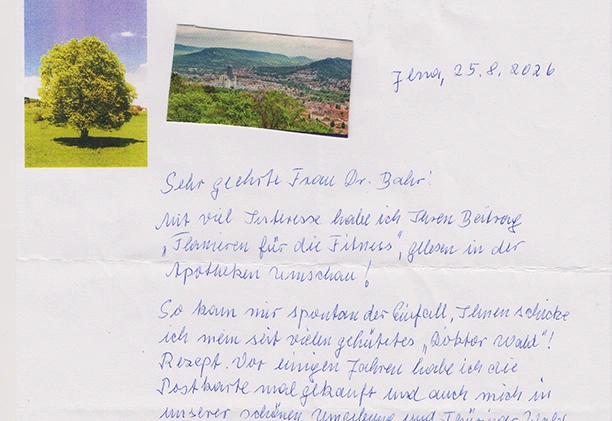 Jena, 25.8.2026
Sehr geehrte Frau Dr. Bahr!
Mit viel Interesse habe ich Ihren Beitrag
„Flanieren für die Fitness“, gelesen in der
Apotheken Umschau!
So kam mir spontan der Einfall, Ihnen schicke
ich mein seit vielen gehütetes „Doktor Wald“!
Rezept. Vor einigen Jahren habe ich die
Postkarte mal gekauft und auch mich in
unserer schönen Umgebung und Thüringer Wald